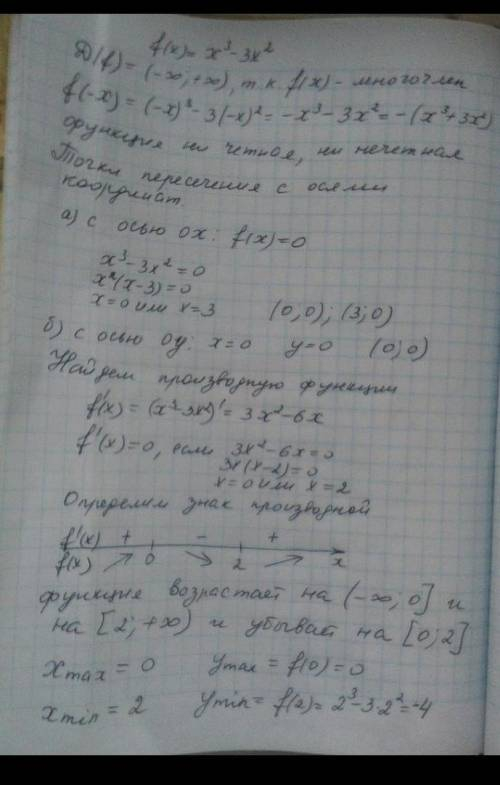 f(x) = x³ - 3x²
D(f) = (-∞; +∞), т.к. f(x) - многочлен
f(-x) = (-x)³ - 3(-x)² = -x³ - 3x² = -(x³+3x²)
функция ни четная, ни нечетная
Точки пересечения с осями
координат.
а) с осью ох: f(x)=0
x³ - 3x² = 0
x²(x-3) = 0
x=0 или x=3 (0,0); (3;0)
б) с осью оу: x=0 y=0 (0;0)
Найдем производную функции
f'(x) = (x³-3x²)' = 3x²-6x
f'(x)=0, если 3x²-6x=0
3x(x-2)=0
x=0 или x=2
Определим знак производной
f'(x) + - +
f(x) ↗ 0 ↘ 2 ↗ x
функция возрастает на (-∞; 0] и
на [2; +∞) и убывает на [0; 2]
xmax = 0 ymax = f(0) = 0
xmin = 2 ymin = f(2) = 2³-3·2² = -4